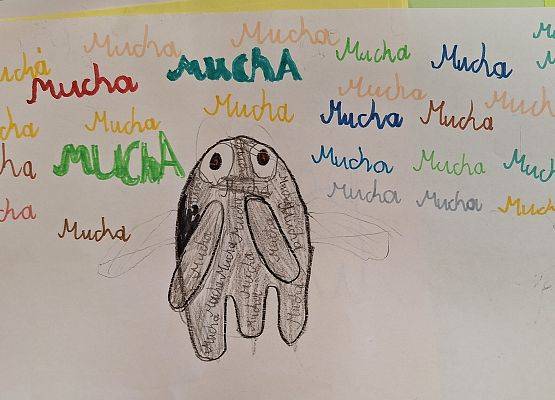 Mucha Mucha Mucha
Mucha Mucha MUCHA Mucha Mucha
Mucha Mucha
Mucha Mucha Mucha Mucha Mucha
Mucha MUCHA Mucha Mucha Mucha
Mucha Mucha
Mucha Mucha
Mucha
Mucha
Mucha
Mucha
Mucha
Mucha
Mucha
Mucha
Mucha